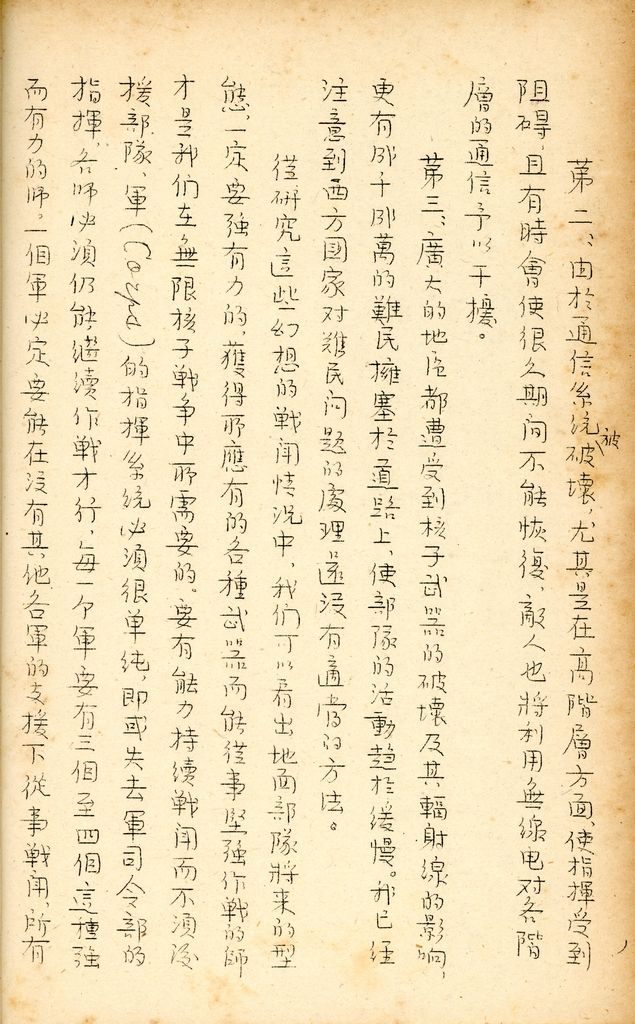 第二、由於通信系統被破壞，尤其是在高階層方面，使指揮受到
阻碍，且有時會使很久期间不能恢復，敵人也將利用無線电对各階
層的通信予以干擾。
第三、廣大的地區都遭受到核子武器的破壞及其輻射線的影响，
更有成千成萬的難民擁塞於道路上，使部隊的活動趋於緩慢。我已経
注意到西方國家对难民问题的處理還没有適當的方法。
從研究這些幻想的戦闘情況中，我们可以看出地面部隊將来的型
態，一定要強有力的，獲得所應有的各種武器而能從事堅強作戦的師
才是我们在無限核子戦争中所需要的。要有能力持續戦闘而不須後
援部隊，軍（Corps）的指揮系統必須很单纯，即或失去軍司令部的
指揮，各師必須仍能継續作戦才行，每一个軍要有三個至四個這種強
而有力的師。一個軍必定要能在没有其他各軍的支援下從事戦闘，所有